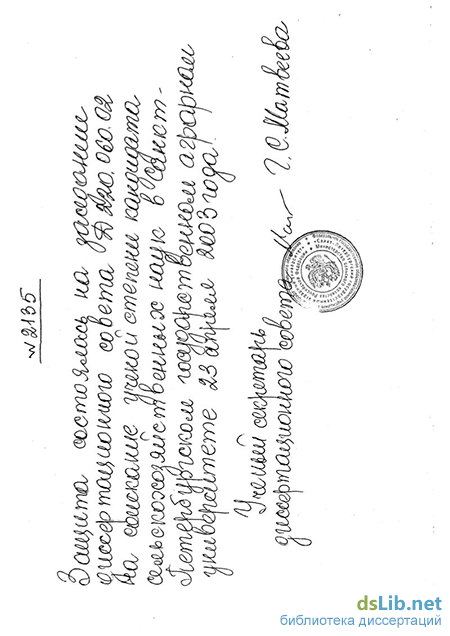 № 2135
Защита состоялась на заседании
диссертационного совета Д 220.060.02
на соискание ученой степени кандидата
сельскохозяйственных наук в Санкт-
Петербургском государственном аграрном
университете 23 апреля 2003 года.
Ученый секретарь
диссертационного совета
Г.С. Матвеева
dsLib.net
библиотека диссертаций